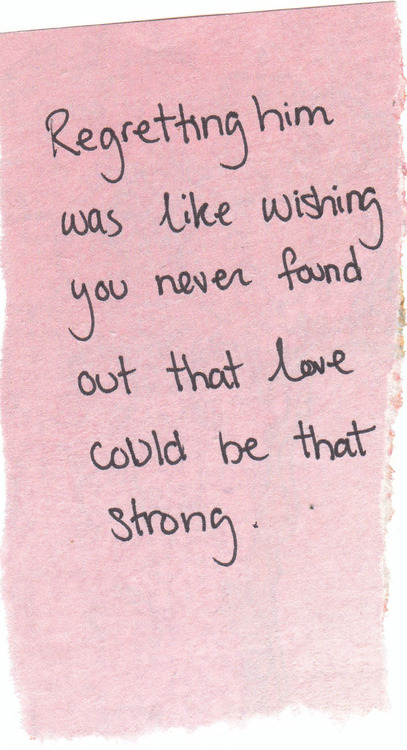 Regretting him
was like wishing
you never found
out that love
could be that
strong.